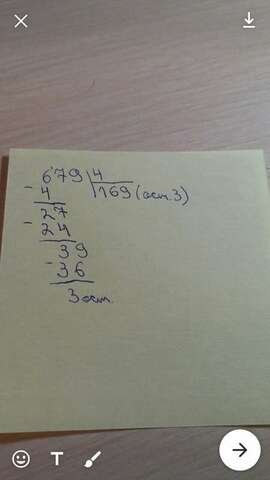 679 | 4
- 4 | 169 (ост. 3)
27
- 24
39
- 36
3 ост.
T